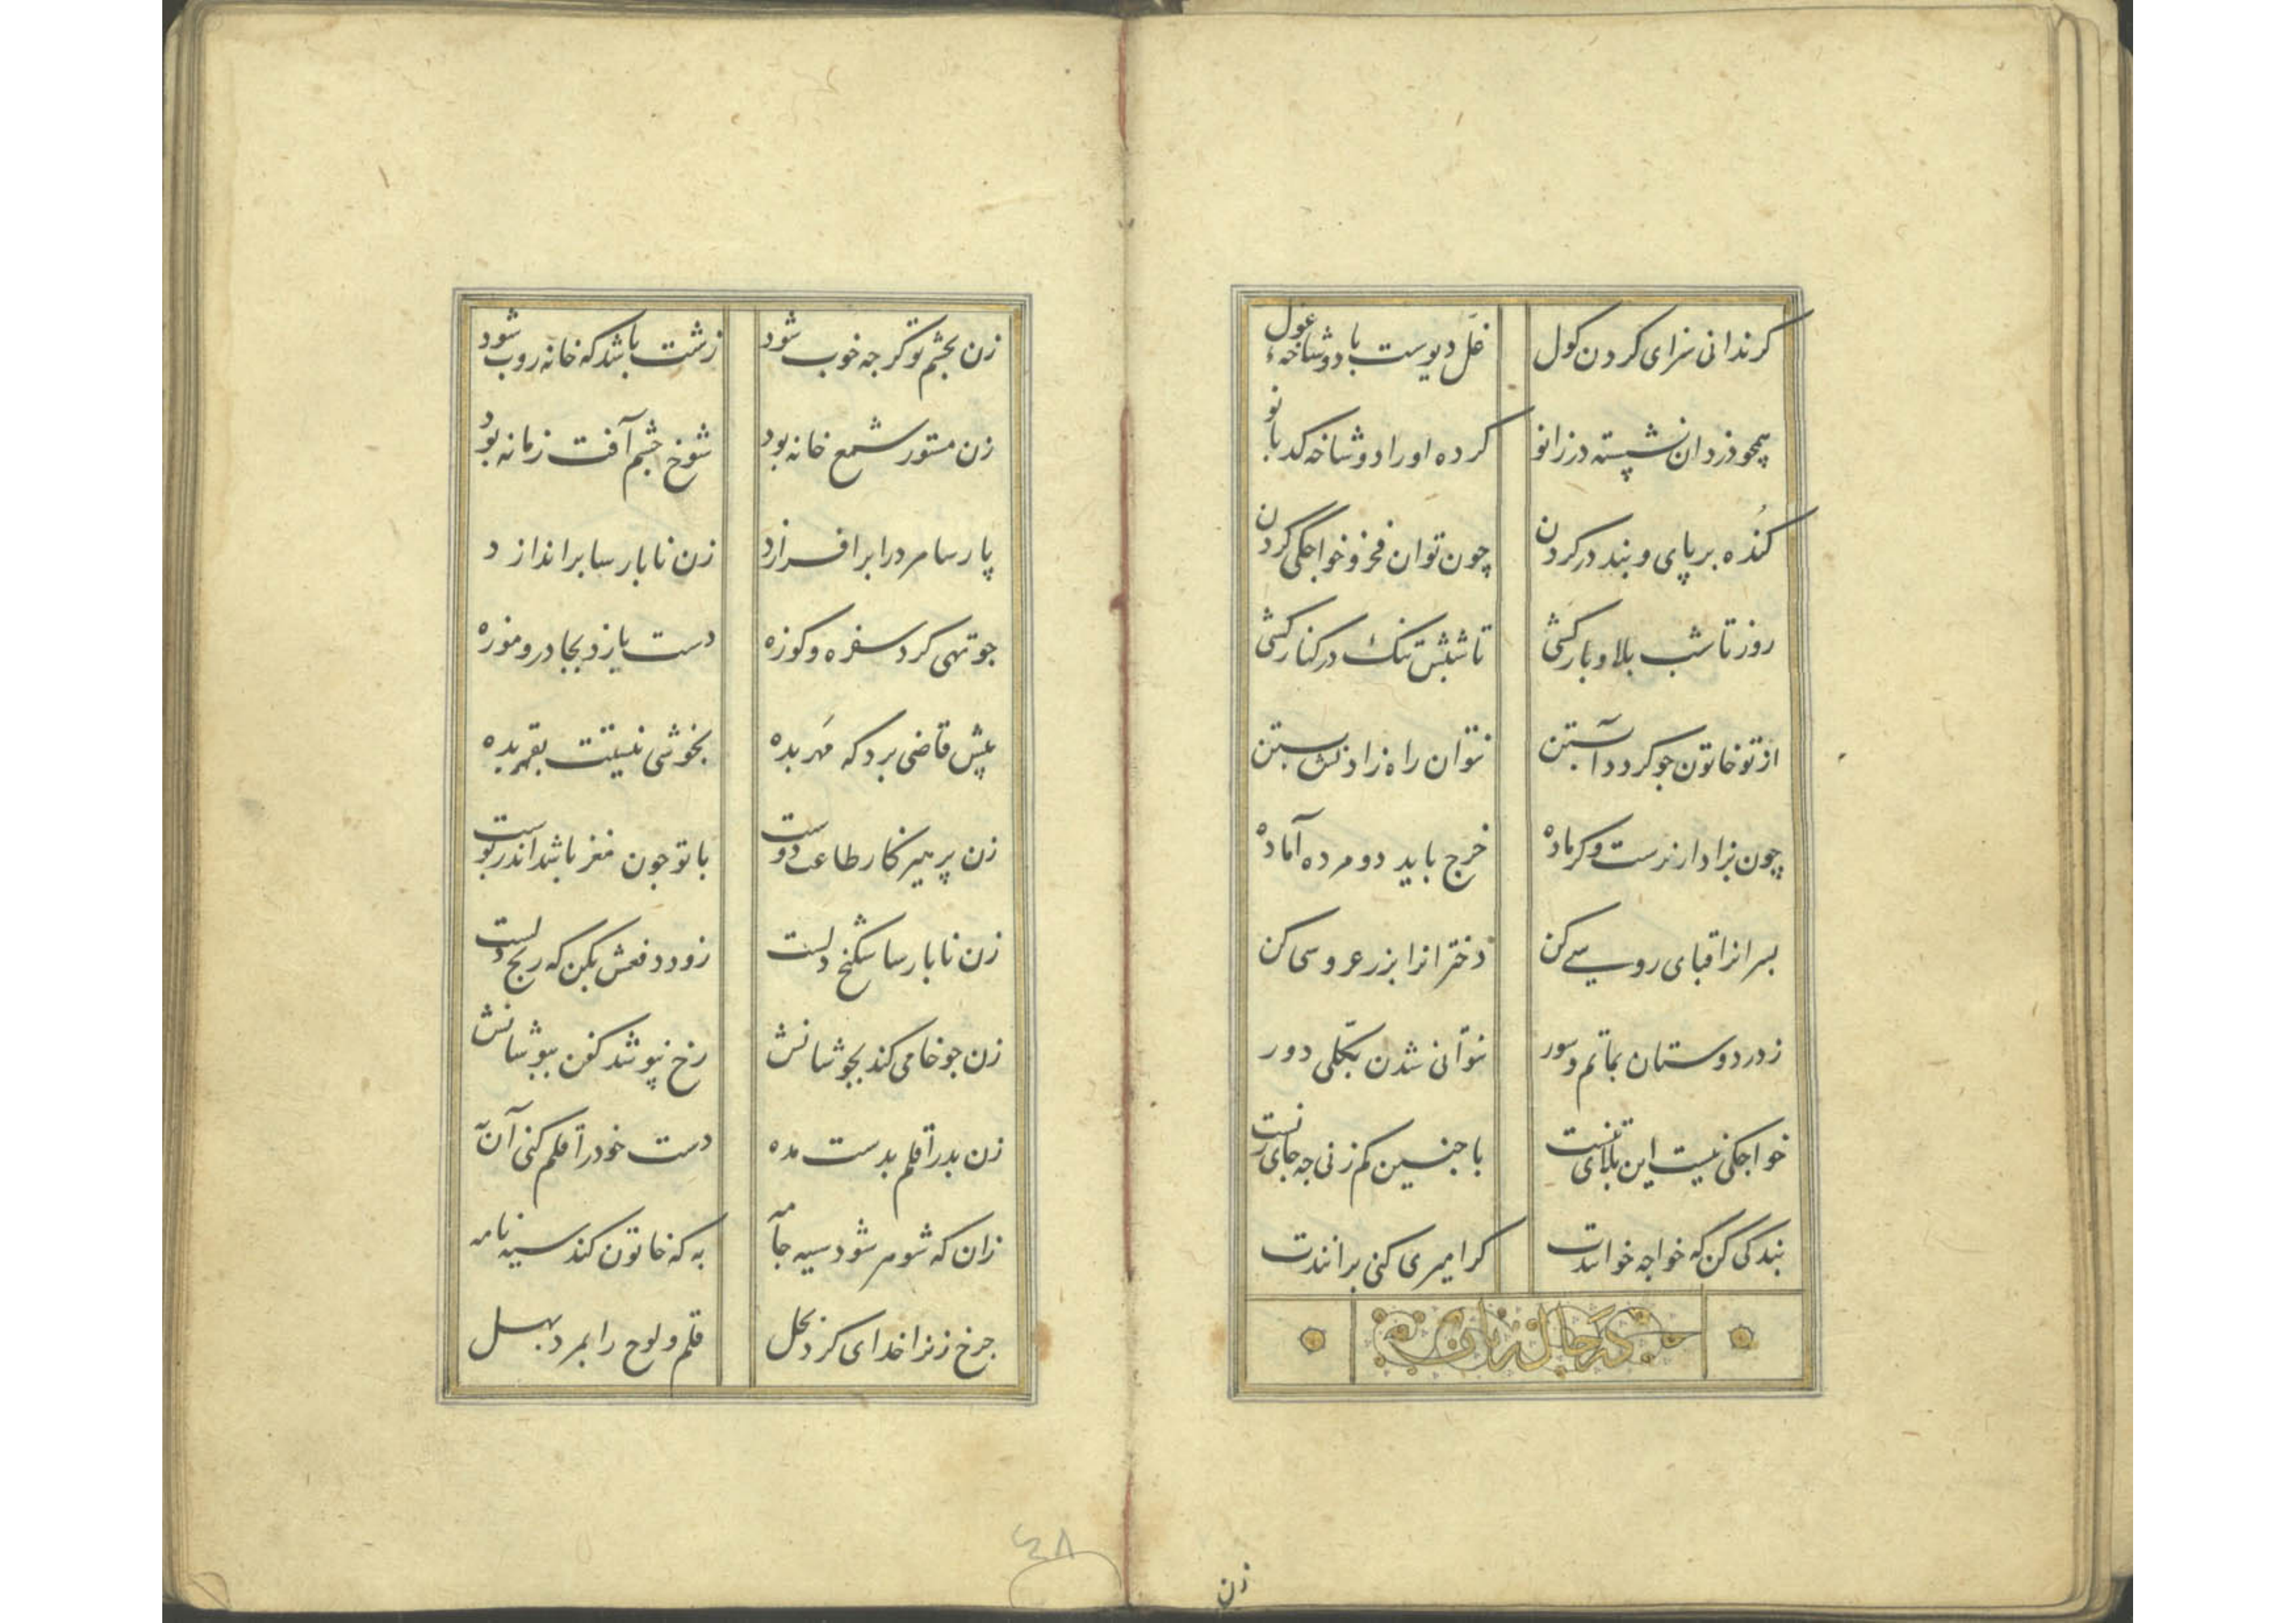 کرندانی سزای کردن کول
غل دیوست با دوشاخهٔ غول
همچو دزدان نشسته در زانو
کرده او را دوشاخه کدبانو
کُنده بر پای و بند در کردن
چون توان فخر و خواجگی کردن
روز تا شب بلا و بار کشی
تا شبش تنک در کنار کشی
از تو خاتون جو کردد آبستن
نتوان راه زادنش بستن
چون بزاد ار نرست و کر ماده
خرج باید دو مرده آماده
بسرانرا قبای روسی کن
دخترانرا بزر عروسی کن
ز در دوستان بماتم و سور
نتوانی شدن بکلی دور
خواجکی نیست این بلای تنست
با جنین کم زنی جه جای زنست
بندکی کن که خواجه خوانندت
کر امیری کنی برانندت
در حال زنان
زن
زن بجشم تو کرجه خوب شود
زشت باشد که خانه روب شود
زن مستور شمع خانه بود
شوخ جشم آفت زمانه بود
پارسا مرد را برافرازد
زن نابارسا براندازد
جو تهی کرد سفره و کوزه
دست یازد بجادر و موزه
پیش قاضی برد که مَهر بده
بخوشی نیستت بقهر بده
زن پرهیزکار طاعت دوست
با تو جون مغز باشد اندر پوست
زن نابارسا شکنج دلست
زود دفعش بکن که رنج دلست
زن جو خامی کند بجوشانش
رخ نپوشد کفن بپوشانش
زن بد را قلم بدست مده
دست خود را قلم کنی آن به
زان که شوهر شود سیه جامه
به که خاتون کند سیه نامه
جرخ زنرا خدای کرد بحل
قلم و لوح را بمرد بهل
۴۸